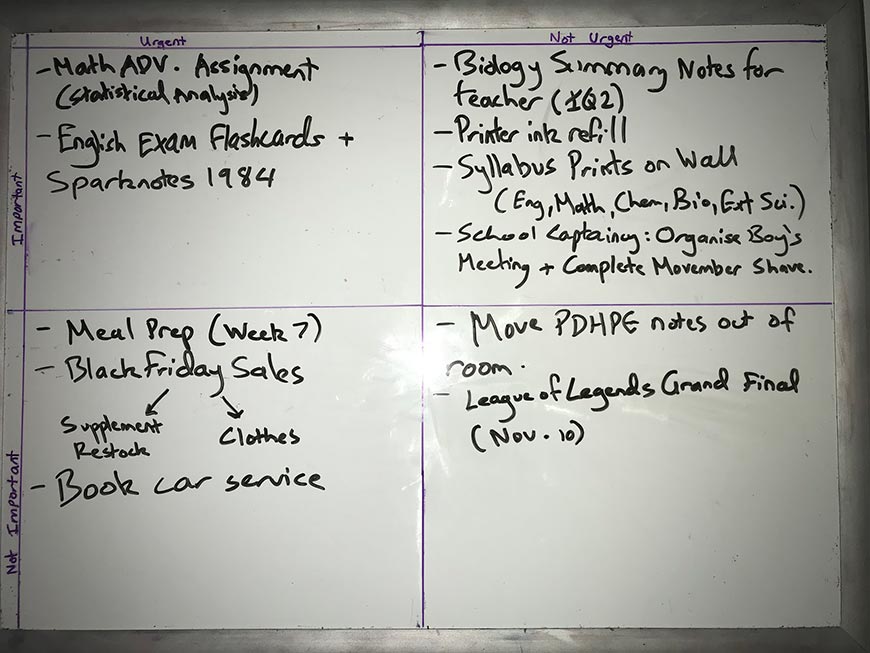 Urgent
Not Urgent
Important
- Math ADV. Assignment
(Statistical Analysis)
- English Exam Flashcards +
Sparknotes 1984
- Biology Summary Notes for
teacher (IQ2)
- Printer ink refill
- Syllabus Prints on Wall
(Eng, Math, Chem, Bio, Ext Sci.)
- School Captaincy: Organise Boy's
Meeting + Complete Movember Shave.
Not Important
- Meal Prep (Week 7)
- Black Friday Sales
Supplement
Restock
Clothes
- Book car service
- Move PDHPE notes out of
room.
- League of Legends Grand Final
(Nov. 10)